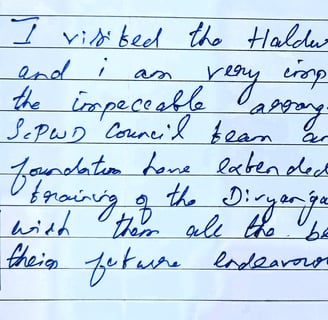 I visited the Haldw
and i am very imp
the impeccable arrang
ScPWD Council team an
foundation have extended
training of the Divyanga
with them all the be
their future endeavour